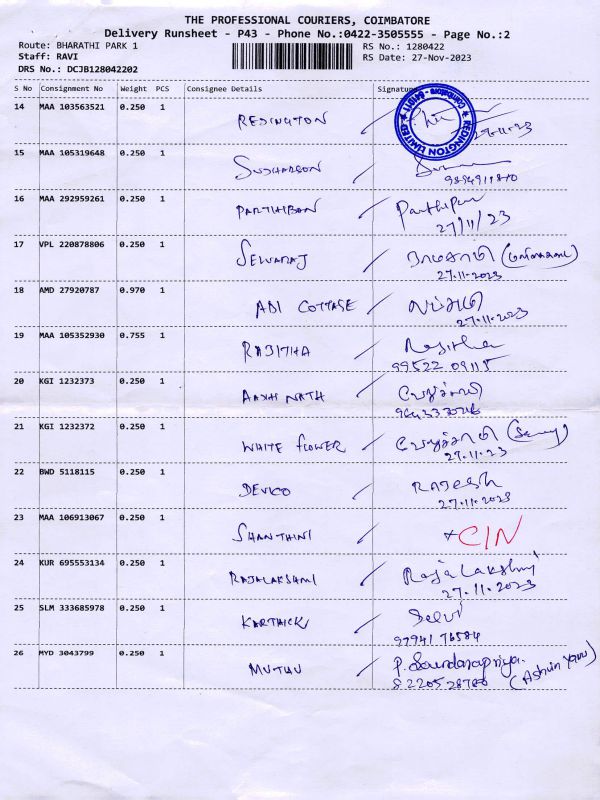 THE PROFESSIONAL COURIERS, COIMBATORE
Delivery Runsheet - P43 - Phone No.:0422-3505555 - Page No.:2
Route: BHARATHI PARK 1
RS No.: 1280422
Staff: RAVI
RS Date: 27-Nov-2023
DRS No.: DCJB128042202
S No Consignment No Weight PCS Consignee Details Signature
14 MAA 103563521 0.250 1 REDINGTON
27-11-23
REDINGTON LIMITED
15 MAA 105319648 0.250 1 SUDHARSON
16 MAA 292959261 0.250 1 PARTHIBAN Parthipan
27/11/23
17 VPL 220878806 0.250 1 SELVARAJ
27.11.2023
18 AMD 27920787 0.970 1 ADI COTTAGE
27.11.2023
19 MAA 105352930 0.755 1 RAJITHA Rajitha
99522 09115
20 KGI 1232373 0.250 1
21 KGI 1232372 0.250 1 WHITE FLOWER
27.11.23
22 BWD 5118115 0.250 1 DEVICO RAJESH
27.11.2023
23 MAA 106913067 0.250 1 SHANTHINI CIN
24 KUR 695553134 0.250 1 RAJALAKSHMI RajaLakshmi
27.11.2023
25 SLM 333685978 0.250 1 KARTHICK Selvi
97941 76584
26 MYD 3043799 0.250 1 MUTHU P. Soundarapriya.